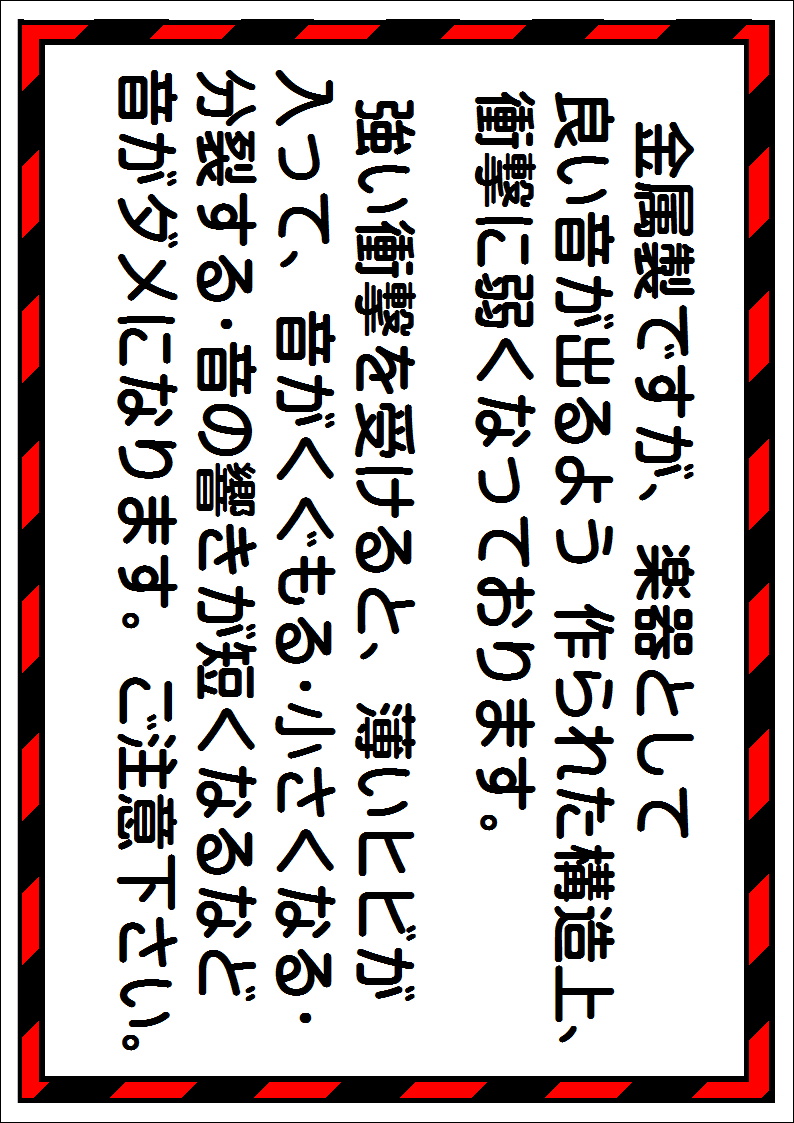 金属製ですが、楽器として
良い音が出るよう 作られた構造上、
衝撃に弱くなっております。
強い衝撃を受けると、薄いヒビが
入って、音がくぐもる・小さくなる・
分裂する・音の響きが短くなるなど
音がダメになります。ご注意下さい。